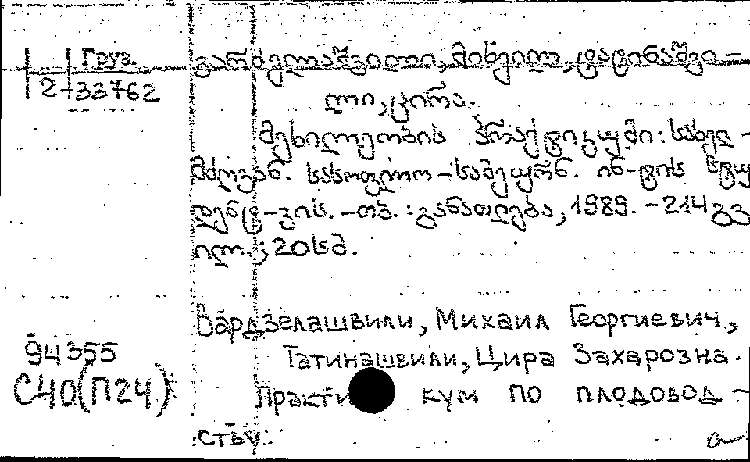 Груз.
2-33762
ვარძელაშვილი, მიხეილ, ტატინაშვი-
ლი, ცირა.
მეხილეობის პრაქტიკუმი: სახელ-
მძღვან. სასოფლო-სამეურნ. ინ-ტის სტუ
დენტ-ვის.-თბ.: განათლება, 1989. -214 გვ
ილ.; 20 სმ.
Вардзелашвили, Михаил Георгиевич,
Татинашвили, Цира Захарозна.
94355
С40(П24)
Практи кум по плодовод-
ству.